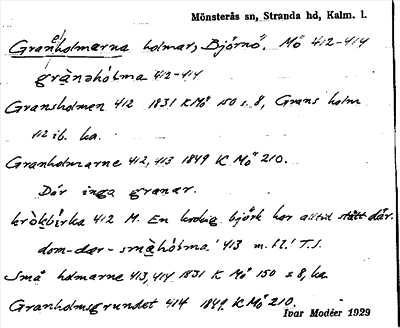 Mönsterås sn, Stranda hd, Kalm. l.
Granholmarna holmar, Björnö. Mö 412-414
gränəhólma 412-414
Gransholmen 412 1831 K Mö 150 s. 8, Grans holm
112 ib. ka.
Granholmarne 412, 413 1849 K Mö 210.
Där inga granar.
kròkbı̀rka 412 M. En krokig björk har alltid stått där.
dom-dær-smàhólma' 413 m.fl.! T.S.
Små holmarne 413, 414 1831 K Mö 150 s 8, ka
Granholmsgrundet 414 1849 K Mö 210.
Ivar Modéer 1929